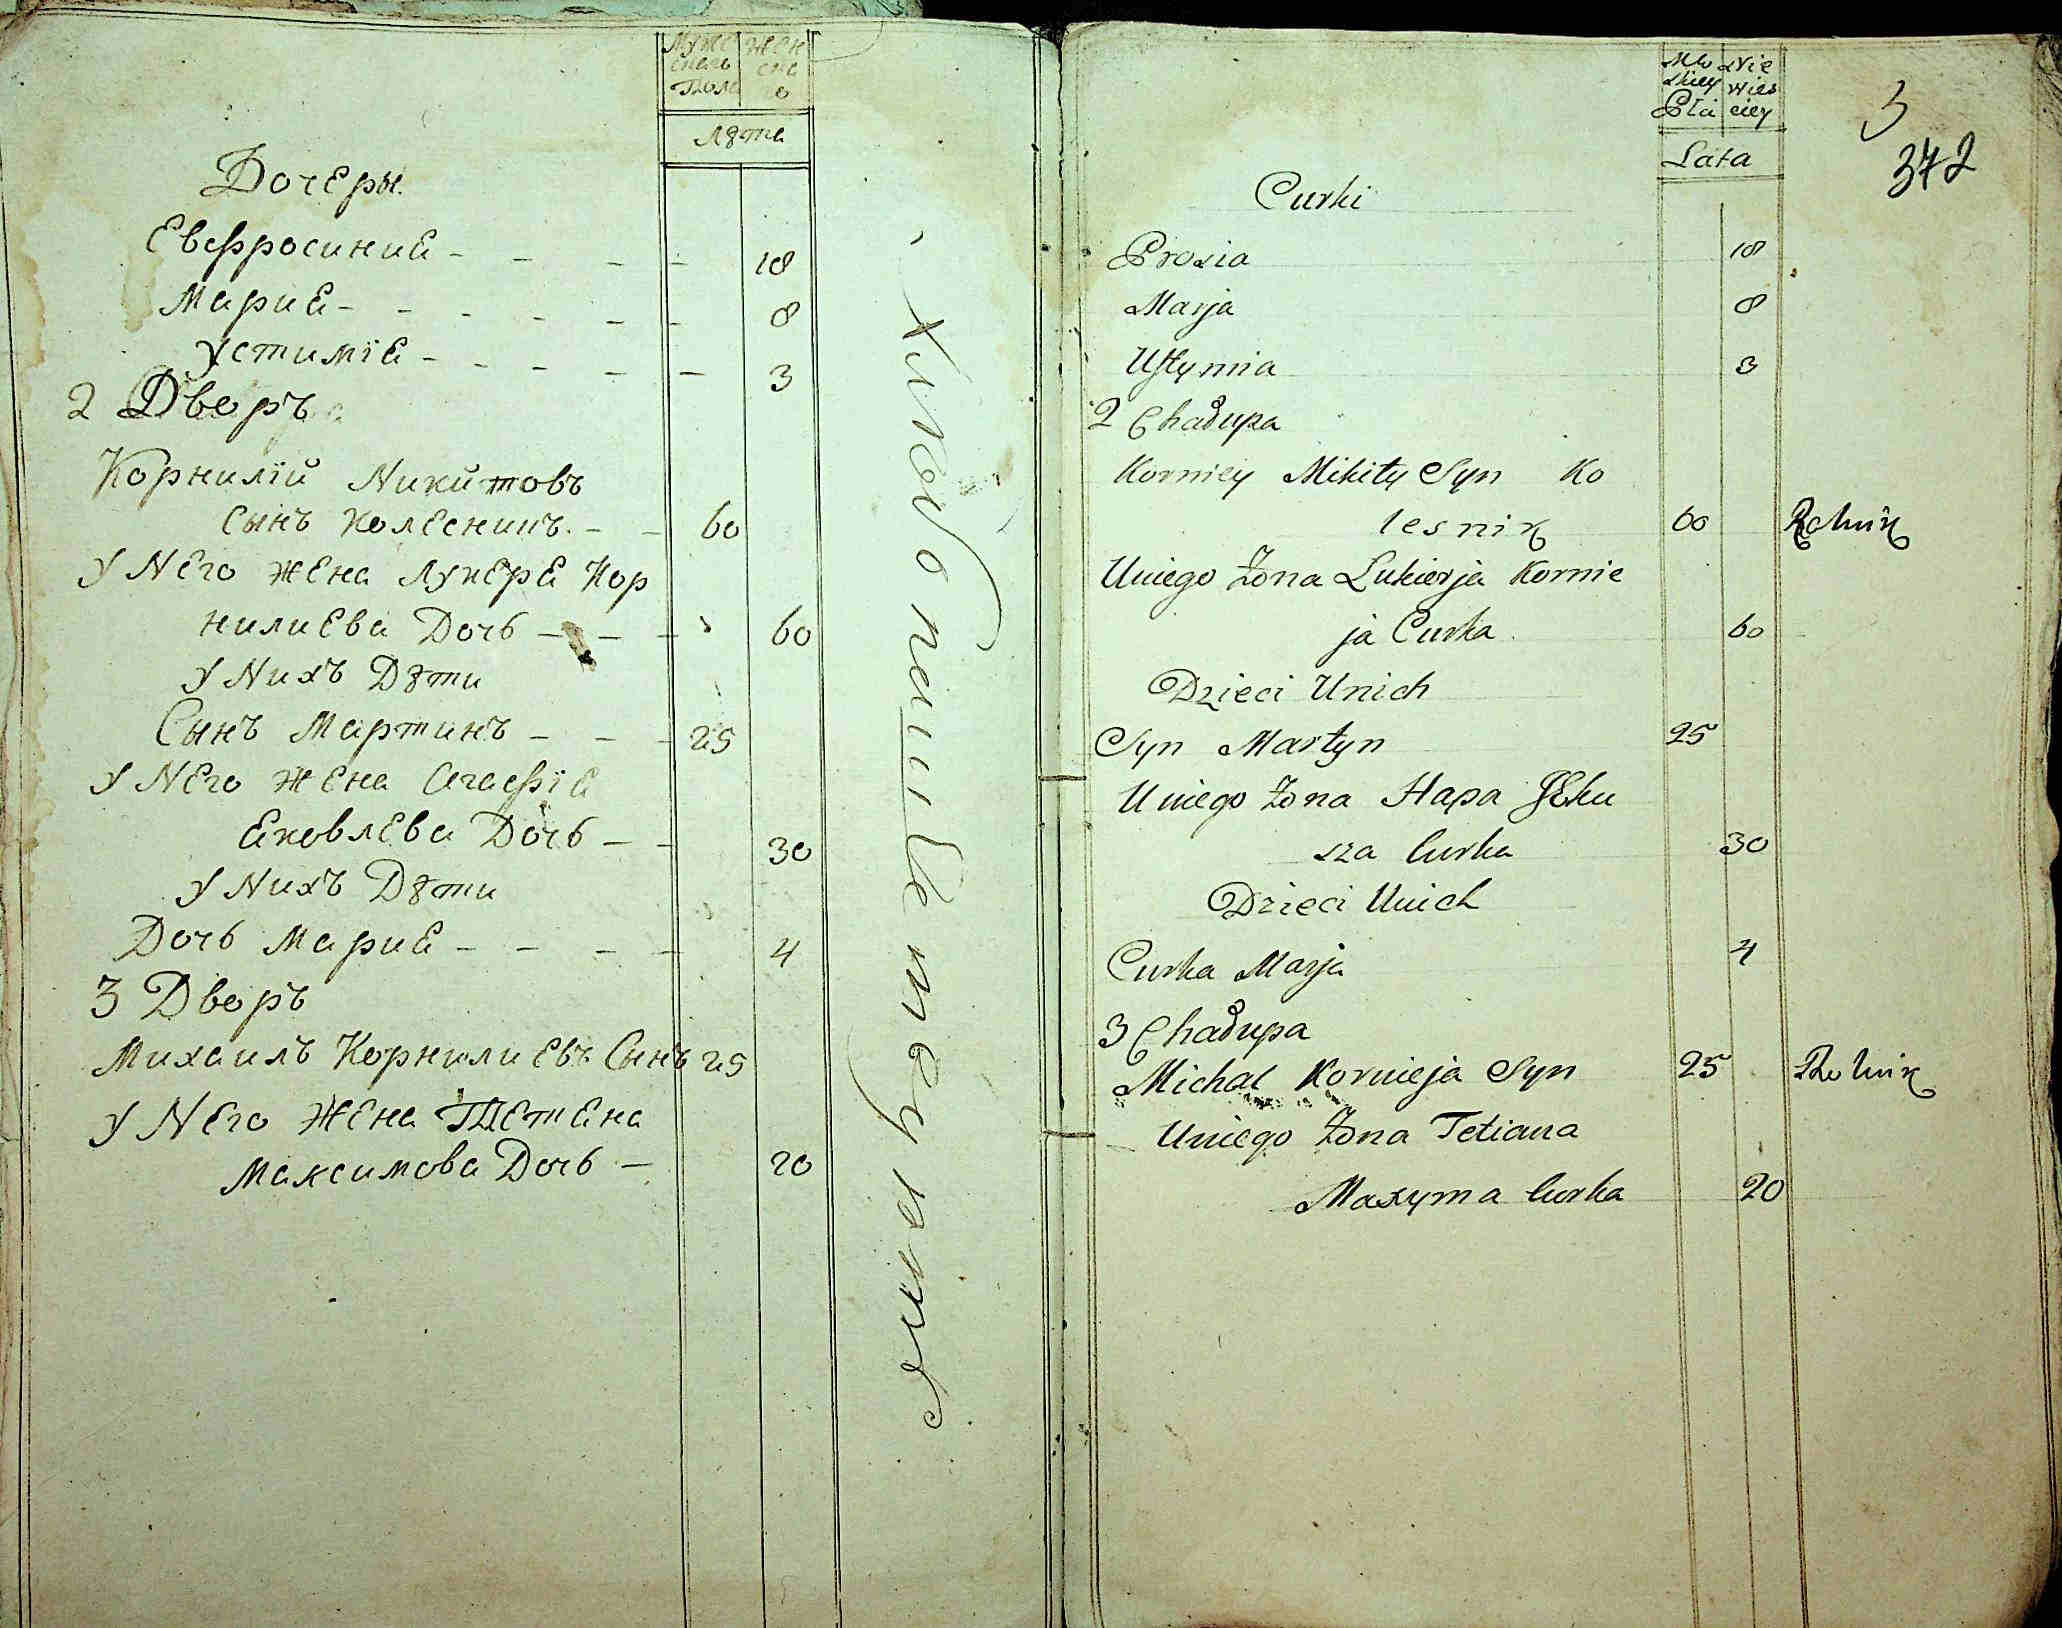 Муже Жен
скаго ска
Пола го
Лѣта
Дочеры
Евфросиния - - - - 18
Мария - - - - - - 8
Устимїя - - - - - 3
2 Дворъ
Корнилїй Никитовъ
Сынъ Колесникъ. - - 60
У Него жена Лукеря Кор
нилиева Дочь - - - 60
У Нихъ Дѣти
Сынъ Мартинъ - - - 25
У Него жена Агафїя
Яковлева Дочь - - 30
У Нихъ Дѣти
Дочь Мария - - - - 4
3 Дворъ
Михаилъ Корнилиевъ Сынъ 25
У Него Жена Тетяна
Максимова Дочь - 20
Хлебопашествуютъ
Mę Nie
skiey wies
Płci ciey
Lata
3
372
Curki
Prosia 18
Marja 8
Ustymia 3
2 Chałupa
Korniey Mikity Syn Ko
lesnik 60 Rolnik
Uniego Żona Lukierja Kornie
ja Curka 60
Dzieci Unich
Syn Martyn 25
Uniego Żona Hapa Jaku
sza Curka 30
Dzieci Unich
Curka Marja 4
3 Chałupa
Michał Kornieja Syn 25 Rolnik
Uniego Żona Tetiana
Maxyma Curka 20